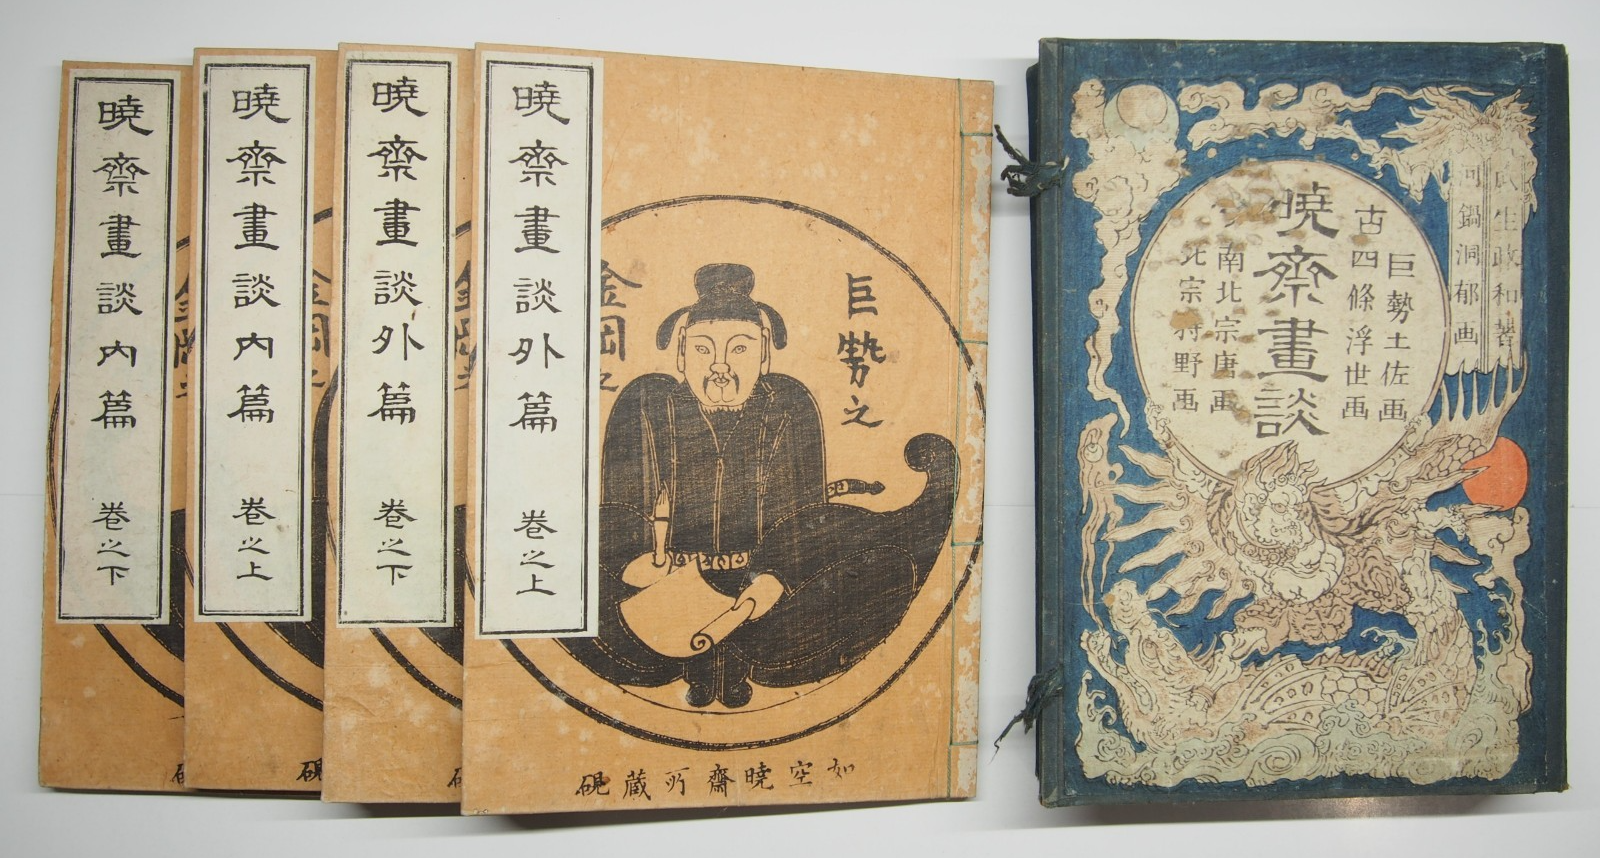 暁齋畫談内篇 巻之下
暁齋畫談内篇 巻之上
暁齋畫談外篇 巻之下
暁齋畫談外篇 巻之上
巨勢之
金岡
如空暁齋所蔵硯
生政和著
河鍋洞郁画
巨勢土佐画
古四條浮世画
暁齋畫談
南北宗唐画
北宗狩野画